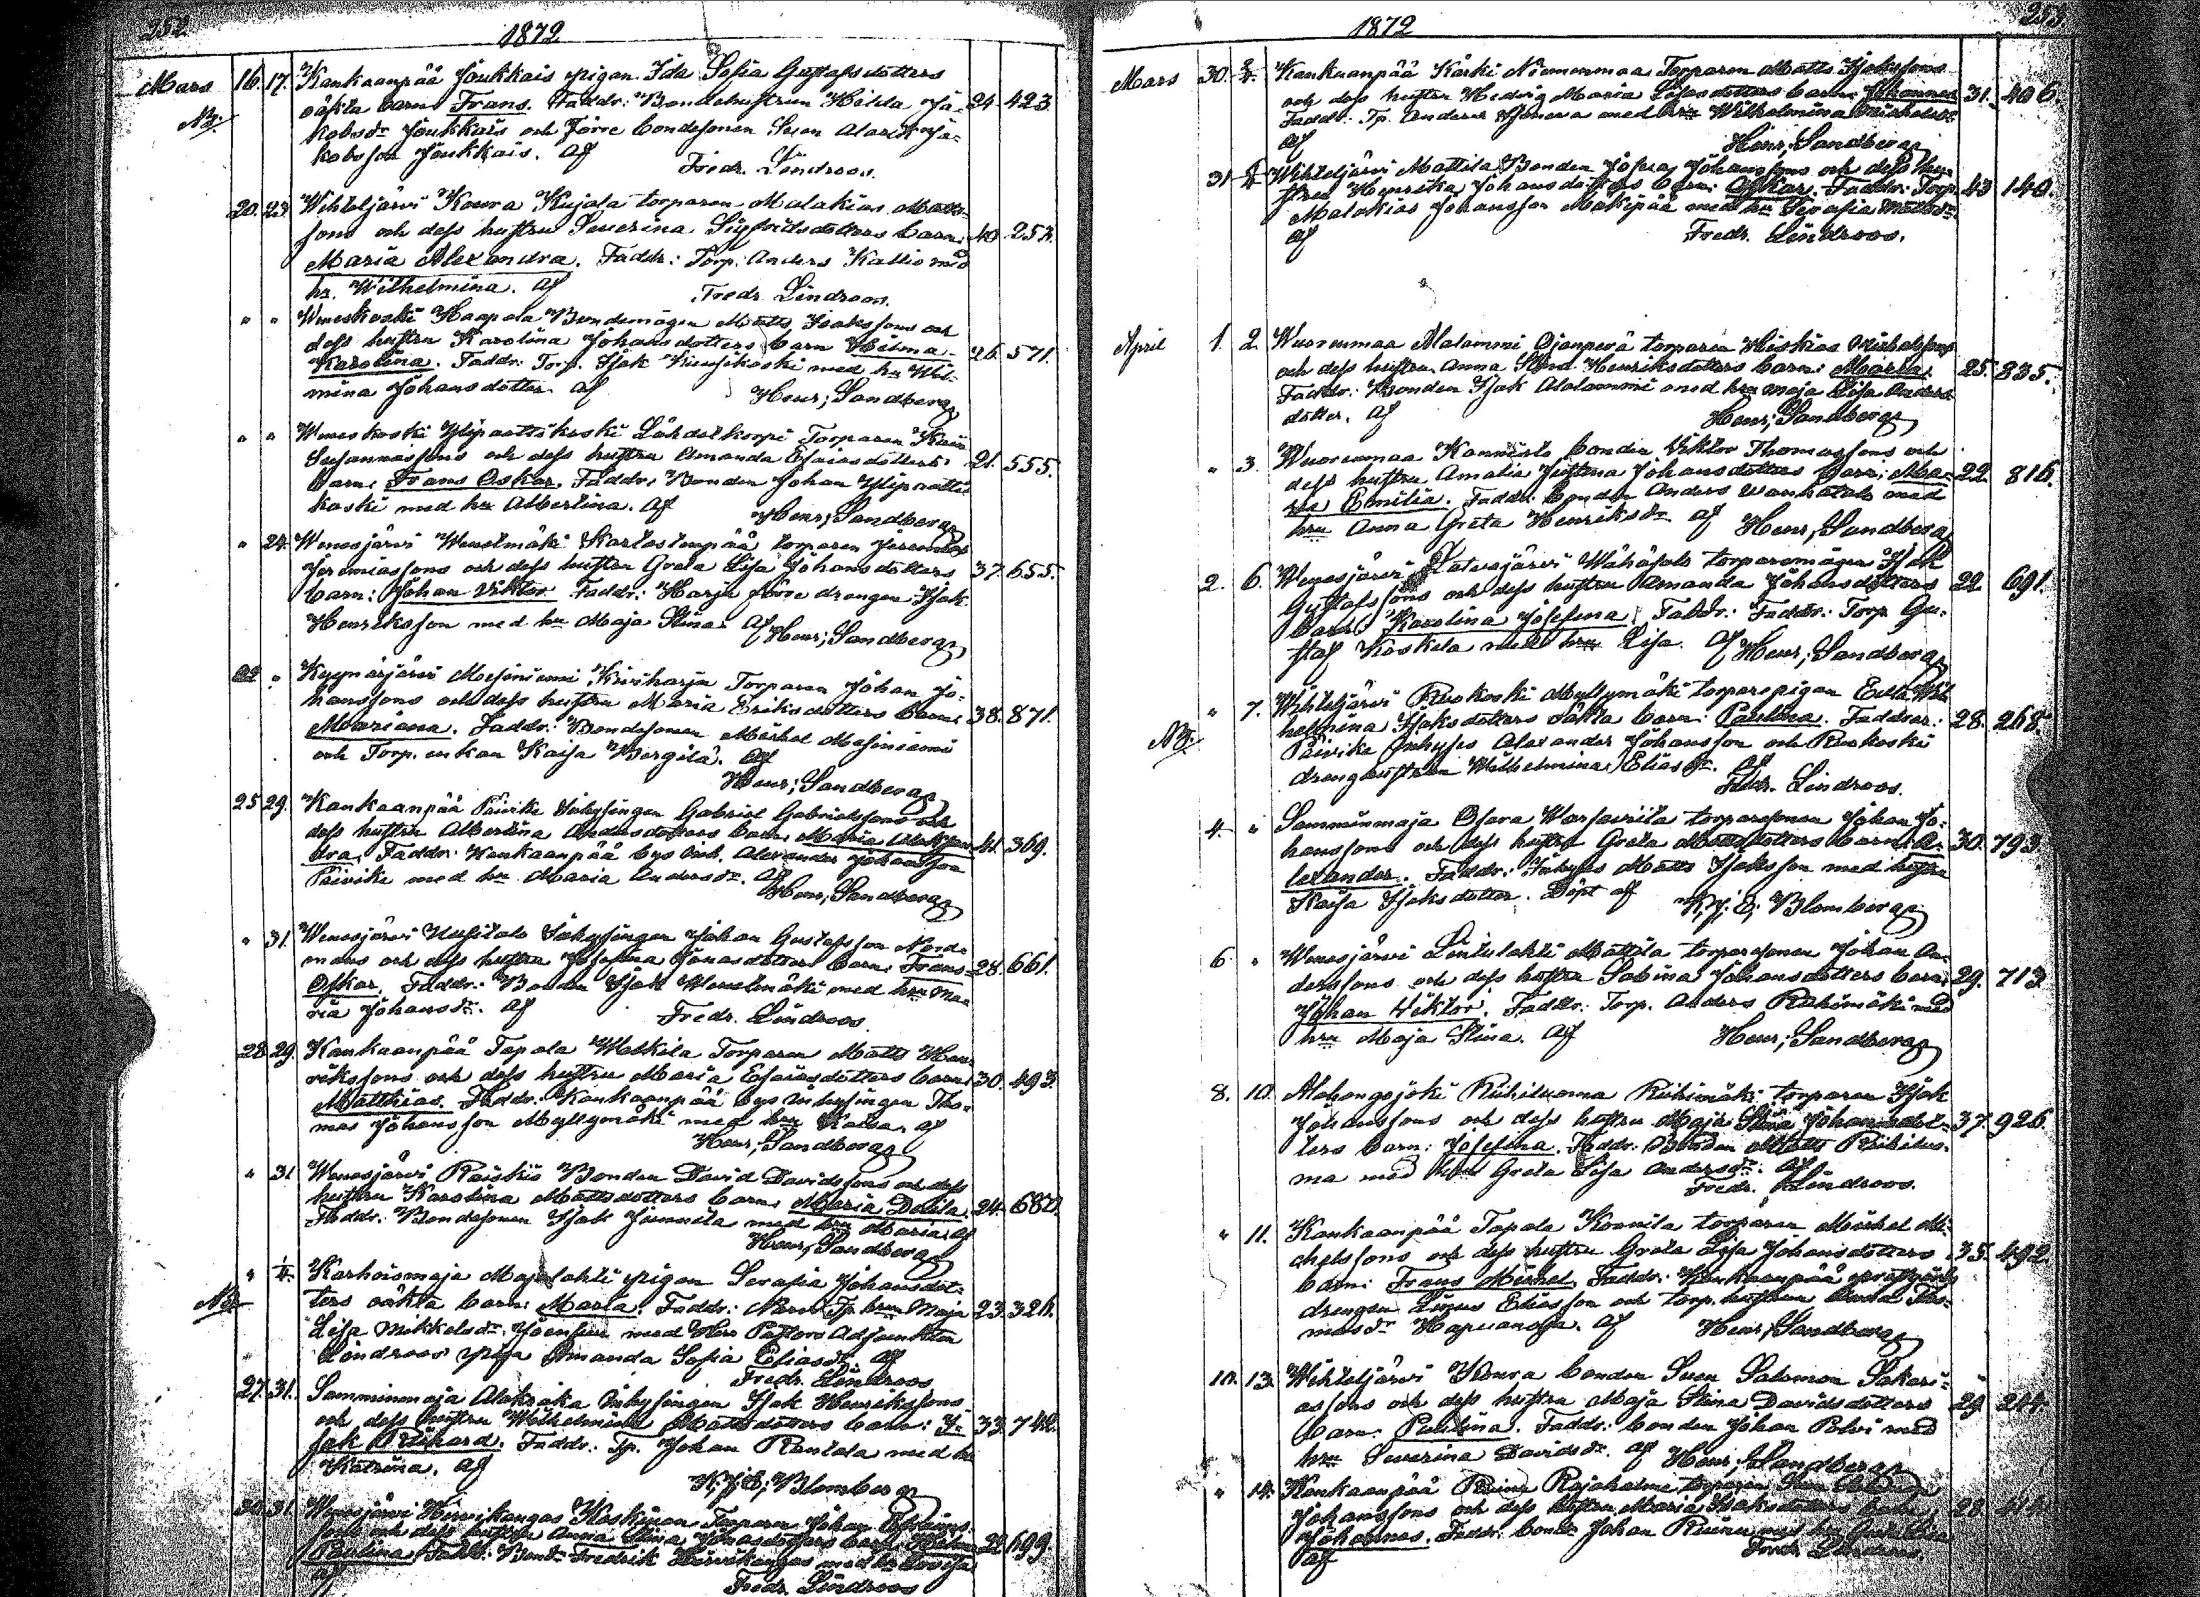 252
1872
Mars 16. 17. Kankaanpää Joukkais pigan Ida Sofia Gustafsdotters
oäkta barn Frans. Faddr: Bondehustrun Hilda Ja- 24. 423.
NB kobsdr Joukkais och förre bondesonen Sven Alarik Ja-
kobsson Joukkais. Af Fredr. Lindroos.
20. 23. Wihteljärvi Koura Kujala torparen Malakias Matts-
sons och dess hustru Severina Sigfridsdotters barn: 40. 253.
Maria Alexandra. Faddr: Torp. Anders Kallio med
hu. Wilhelmina. Af Fredr. Lindroos.
" " Weneskoski Haapola Bondemågen Matts Isaksson och
dess hustru Karolina Johansdotters barn Hilma 26. 571.
Karolina. Faddr: Torp. Isak med hu Wil-
mina Johansdotter. Af Henr; Sandberg
" " Weneskoski Ylipaattikoski Lähdekorpi Torparen
sons och dess hustru Amanda Esaiasdotters 21. 555.
barn: Frans Oskar. Faddr: Bonden Johan Ylipaatti-
koski med hu Albertina. Af Henr; Sandberg
" 24. Wenesjärvi Wenelmäki torparen Jeremias
Jeremiassons och dess hustru Greta Lisa Johansdotters 37. 655.
barn: Johan Viktor. Faddr: Harju förre drengen Isak
Henriksson med hu Maja Stina. Af Henr; Sandberg
22. " Kyynärjärvi Mesiniemi Kiviharju Torparen Johan Jo-
hanssons och dess hustru Maria Eriksdotters barn: 38. 871.
Mariana. Faddr: Bondesonen Michel Mesiniemi
och Torp. enkan Kaisa Bergilä. Af
Henr; Sandberg
25. 29. Kankaanpää Päivike Inhysingen Gabriel Gabrielssons och
dess hustru Albertina Andersdotters barn: Maria Alexan- 41. 369.
dra. Faddr: Kankaanpää bys inh. Alexander Johansson
Päivike med hu Maria Andersdr. Af
Henr; Sandberg
" 31. Wenesjärvi Uusitalo Inhysingen Johan Gustafsson Nord-
mans och dess hustru Josefina Jonasdotters barn: Frans 28. 661.
Oskar. Faddr: Bonden Isak Wenelmäki med hru Ma-
ria Johansdr. Af Fredr. Lindroos
28. 29. Kankaanpää Tapala Torparen Matts Hen-
rikssons och dess hustru Maria Esaiasdotters barn: 30. 493.
Matthias. Faddr: Kankaanpää bys inhysingen Tho-
mas Johansson Myllymäki med hru Kaisa. Af
Henr; Sandberg
" 31. Wenesjärvi Raiskio Bonden David Davidssons och dess
hustru Karolina Mattsdotters barn: Maria Dalila. 24. 680.
Faddr: Bondesonen Isak Junnila med hru Maria. Af
Henr; Sandberg
" 1/4. Karhoismaja Majalahti pigan Serafia Johansdot-
NB ters oäkta barn: Maria. Faddr: Tp. hru Maja 23. 326.
Lisa Mikkelsdr. med Herr Pastors Adjunkten
Lindroos piga Amanda Sofia Eliasdr. Af
Fredr. Lindroos
27. 31. Samminmaja Alakraka Inhysingen Isak Henrikssons
och dess hustru Wilhelmina Mattsdotters barn: I- 33. 742.
sak Rikhard. Faddr: Tp. Johan Rantala med hu
Katrina. Af K; J; E; Blomberg
30. 31. Wenesjärvi Hirvikangas Koskinen Torparen Johan
sons och dess hustru Anna Stina Jonasdotters barn: 699.
Paulina. Faddr: Bond. Fredrik Hirvikangas med hu Lovisa
Af Fredr. Lindroos
253
1872
Mars 30. Kankaanpää Kärki Niemenmaa Torparen Matts Isakssons
och dess hustru Hedvig Maria Lisasdotters barn: Johannes 31. 406.
Faddr: Tp. Anders med hru Wilhelmina
Af Henr; Sandberg
31. Wihteljärvi Mattila Bonden Josua Johanssons och dess hu-
stru Henrika Johansdotters barn: Oskar. Faddr: Torp. 43. 140.
Malakias Johansson Mäkipää med hu Serafia Mattsdr.
Af Fredr. Lindroos.
April 1. 2. Wuorenmaa Alatammi Ojanperä torparen Hiskias Michelssons
och dess hustru Anna Henriksdotters barn: Maria. 25. 835.
Faddr: Bonden Isak Alatammi med hru Maja Lisa Anders-
dotter. Af Henr; Sandberg
" 3. Wuorenmaa Kannisto bonden Viktor Thomassons och
dess hustru Amalia Justina Johansdotters barn: Ma- 22. 816.
ria Emilia. Faddr: bonden Anders Wanhatalo med
hru Anna Greta Henriksdr. Af Henr; Sandberg
2. 6. Wenesjärvi Wähäsalo torparemågen Isak
Gustafssons och dess hustru Amanda Johansdotters 22. 691.
barn: Karolina Josefina. Faddr: Faddr: Torp. Gu-
staf Koskela med hru Lisa. Af Henr; Sandberg
" 7. Wihteljärvi Ruokoski Myllymäki torparepigan Eva Wil-
NB helmina Isaksdotters oäkta barn: Paulina. Faddrar: 28. 268.
Päivike Inhyses Alexander Johansson och Ruokoski
drenghustrun Wilhelmina Eliasdr. Af
Fredr. Lindroos.
4. " Samminmaja Osara torparesonen Johan Jo-
hanssons och dess hustru Greta Mattsdotters barn: A- 30. 793.
lexander. Faddr: Inhyses Matts Isaksson med hustru
Kaisa Isaksdotter. Döpt af K; J; E; Blomberg
6. " Wenesjärvi Lintulahti Mattila torparesonen Johan An-
derssons och dess hustru Sabina Johansdotters barn: 29. 713.
Johan Wiktor. Faddr: Torp. Anders Riihimäki med
hru Maja Stina. Af Henr; Sandberg
8. 10. Alahongojoki Riihiluoma Riihimäki torparen Isak
Johanssons och dess hustru Maja Stina Johansdot- 37. 926.
ters barn: Josefina. Faddr: Bonden Matts Riihiluo-
ma med hru Greta Lisa Andersdr. Af
Fredr. Lindroos.
" 11. Kankaanpää Tapala torparen Michel Mi-
chelssons och dess hustru Greta Lisa Johansdotters 35. 492.
barn: Frans Michel. Faddr: Kankaanpää
drengen Linus Eliasson och torp. hustrun Tho-
masdr Hapuanoja. Af Henr; Sandberg
10. 13. Wihteljärvi Koura bonden Sven Salomon Sakari-
assons och dess hustru Maja Stina Davidsdotters 29. 244.
barn: Paulina. Faddr: bonden Johan Polvi med
hru Severina Davidsdr. Af Henr; Sandberg
" 14. Kankaanpää Ruine Rajaholma torparen Sven
Johanssons och dess hustru Maria Isaksdotters barn 28.
Johannes. Faddr: bond. Johan Ruine med hru
Af Fredr. Lindroos.